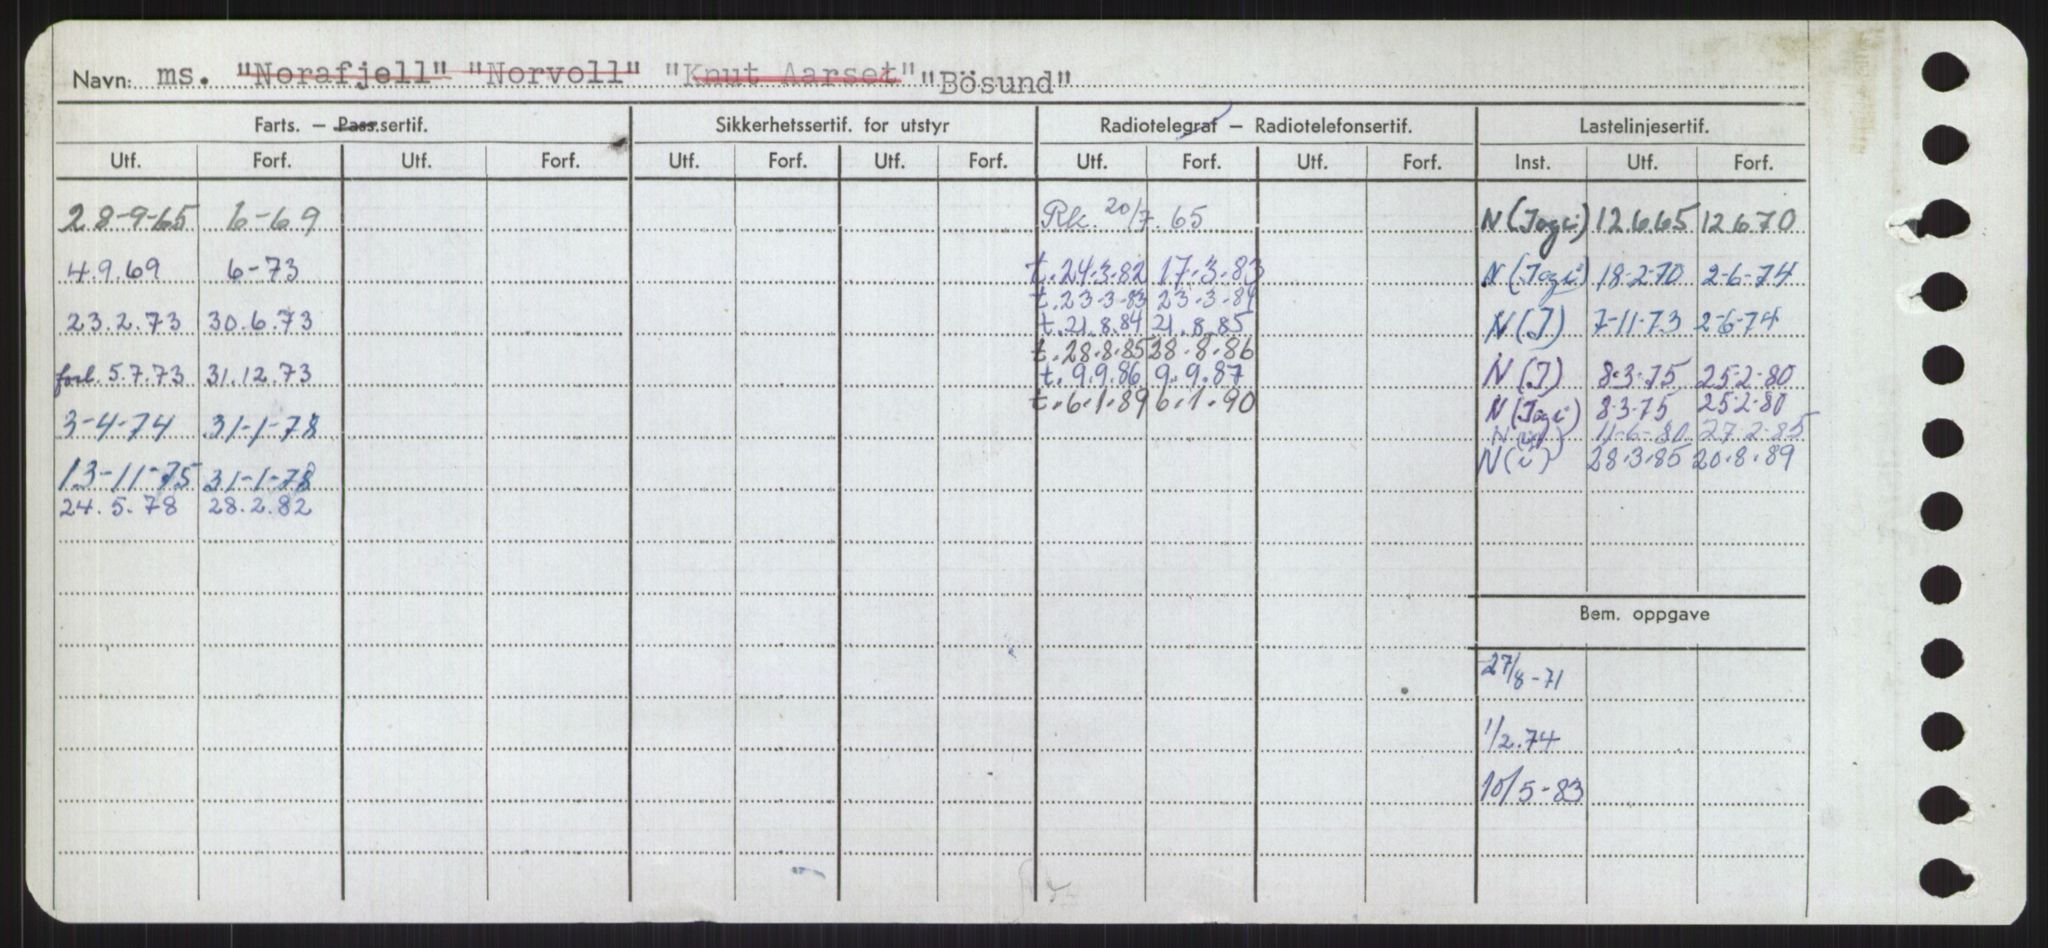 Navn: ms. "Norafjell" "Norvoll" "Knut Aarset" "Bösund"
Farts. – Pass.sertif. Sikkerhetssertif. for utstyr Radiotelegraf – Radiotelefonsertif. Lastelinjesertif.
Utf. Forf. Utf. Forf. Utf. Forf. Utf. Forf. Utf. Forf. Utf. Forf. Inst. Utf. Forf.
28-9-65 6-69 Rk. 20/7.65 N (Jogi) 12.6.65 12.6.70
4.9.69 6-73 t. 24.3.82 17.3.83 N (Jogi) 18-2-70 2-6-74
t. 23-3-83 23-3-84
23.2.73 30.6.73 t. 21.8.84 21.8.85 N (J) 7-11-73 2-6-74
t. 28.8.85 28.8.86
forl. 5.7.73 31.12.73 t. 9.9.86 9.9.87 N (J) 8.3.75 25.2.80
t. 6.1.89 6.1.90 N (Jogi) 8.3.75 25.2.80
3-4-74 31-1-78 N 11-6-80 27.2.85
13-11-75 31-1-78 N (i) 28.3.85 20.8.89
24.5.78 28.2.82
Bem. oppgave
27/8-71
1/2.74
10/5-83